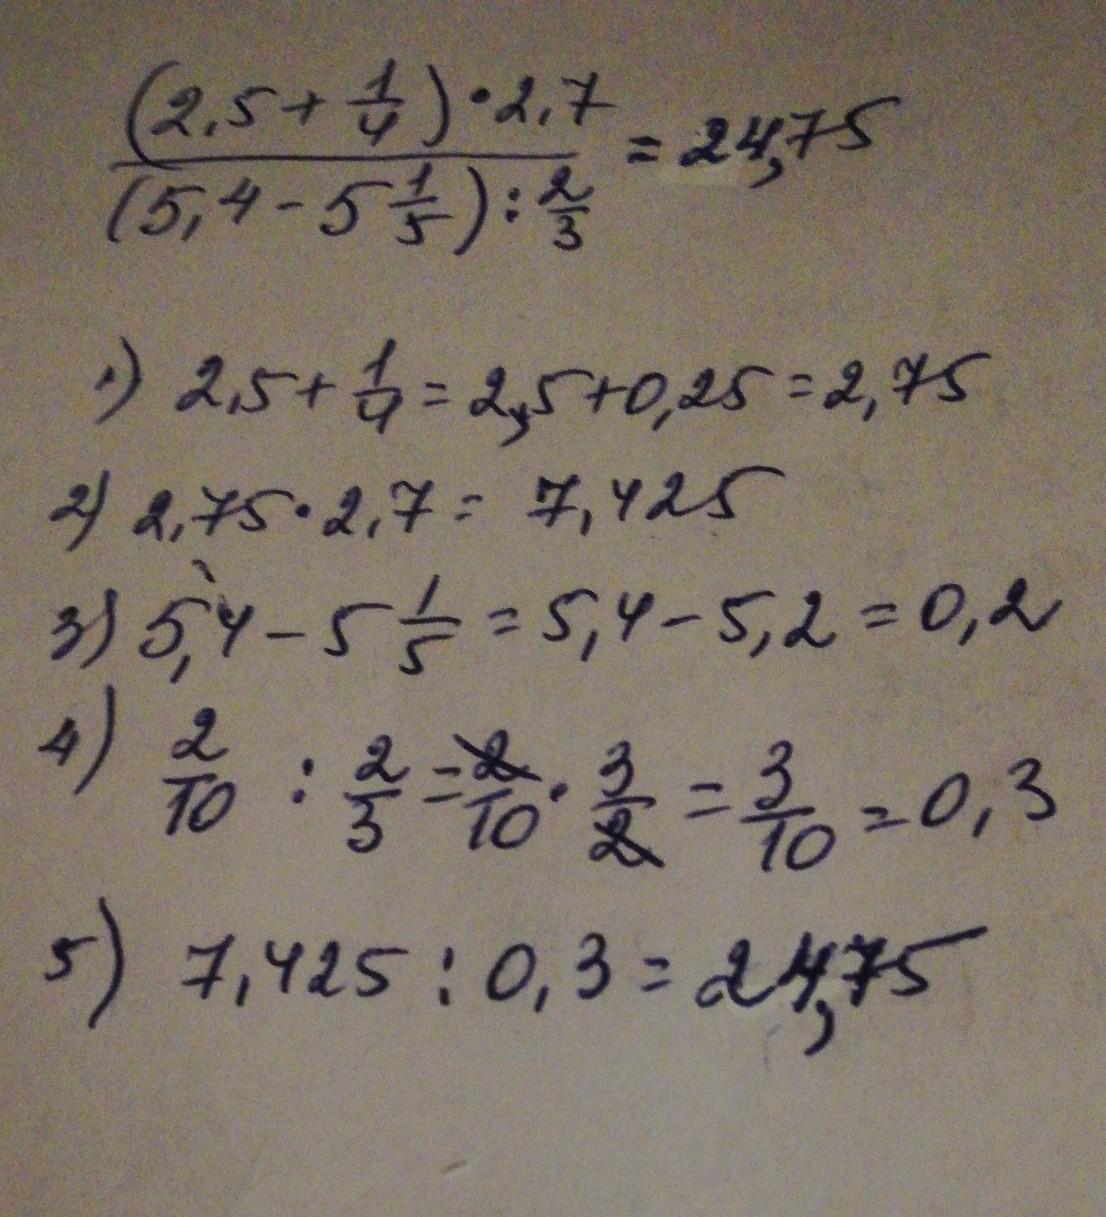 (2,5 + 1/4) · 2,7 / (5,4 - 5 1/5) : 2/3 = 24,75
1) 2,5 + 1/4 = 2,5 + 0,25 = 2,75
2) 2,75 · 2,7 = 7,425
3) 5,4 - 5 1/5 = 5,4 - 5,2 = 0,2
4) 2/10 : 2/3 = 2/10 · 3/2 = 3/10 = 0,3
5) 7,425 : 0,3 = 24,75